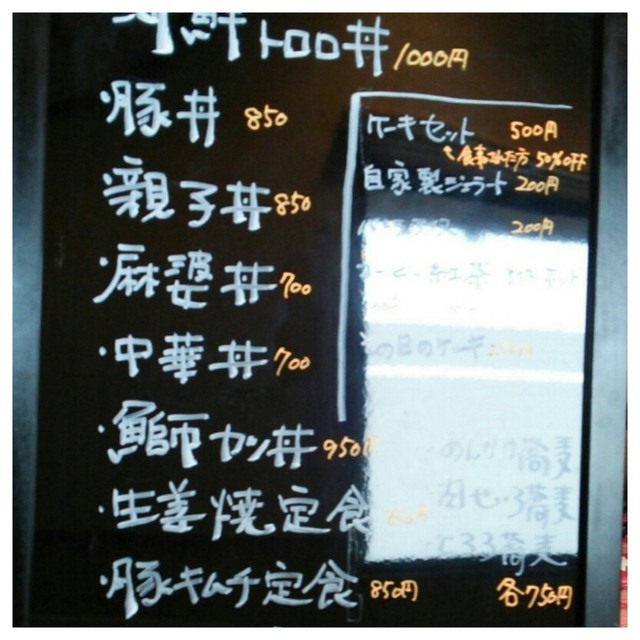 海鮮トロロ丼 1000円
・豚丼 850
・親子丼 850
・麻婆丼 700
・中華丼 700
・鰤カツ丼 950円
・生姜焼定食
・豚キムチ定食 850円
ケーキセット 500円
食事された方 50%OFF
自家製ジェラート 200円
200円
コーヒー 紅茶
その日のケーキ
あんかけ蕎麦
肉せいろ蕎麦
とろろ蕎麦
各750円